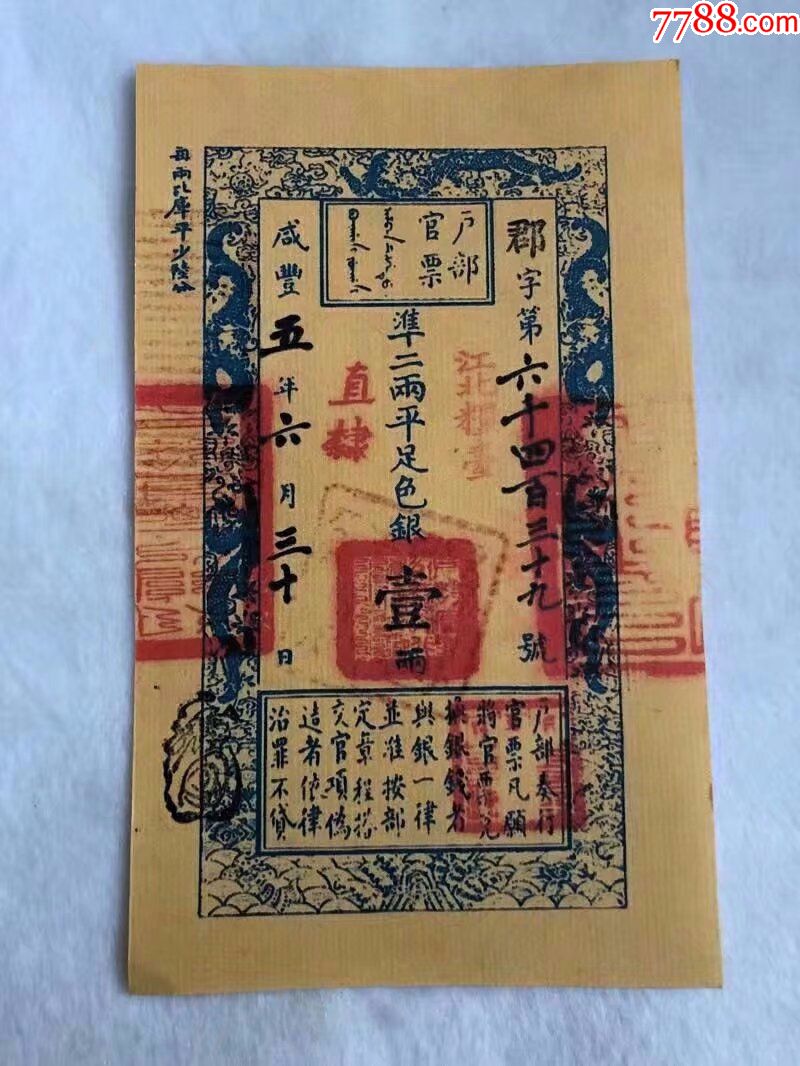 7788.com
戶部
官票
郡字第六十四百三十九號
準二兩平足色銀壹兩
咸豐五年六月三十日
江北糧臺
直棣
每兩比庫平少陸分
戶部奏行
官票凡願
將官票兌
換銀錢者
與銀一律
並准按部
定章程搭
交官項偽
造者依律
治罪不貸